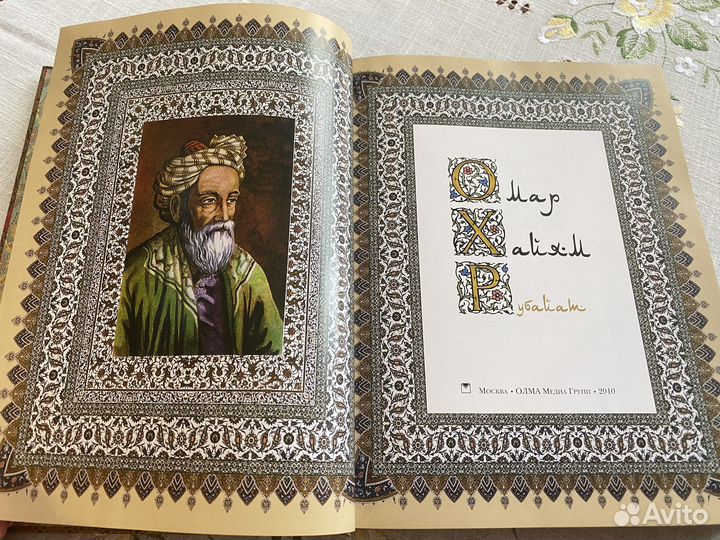 Омар
Хайям
Рубайат
Москва • ОЛМА Медиа Групп • 2010
Avito